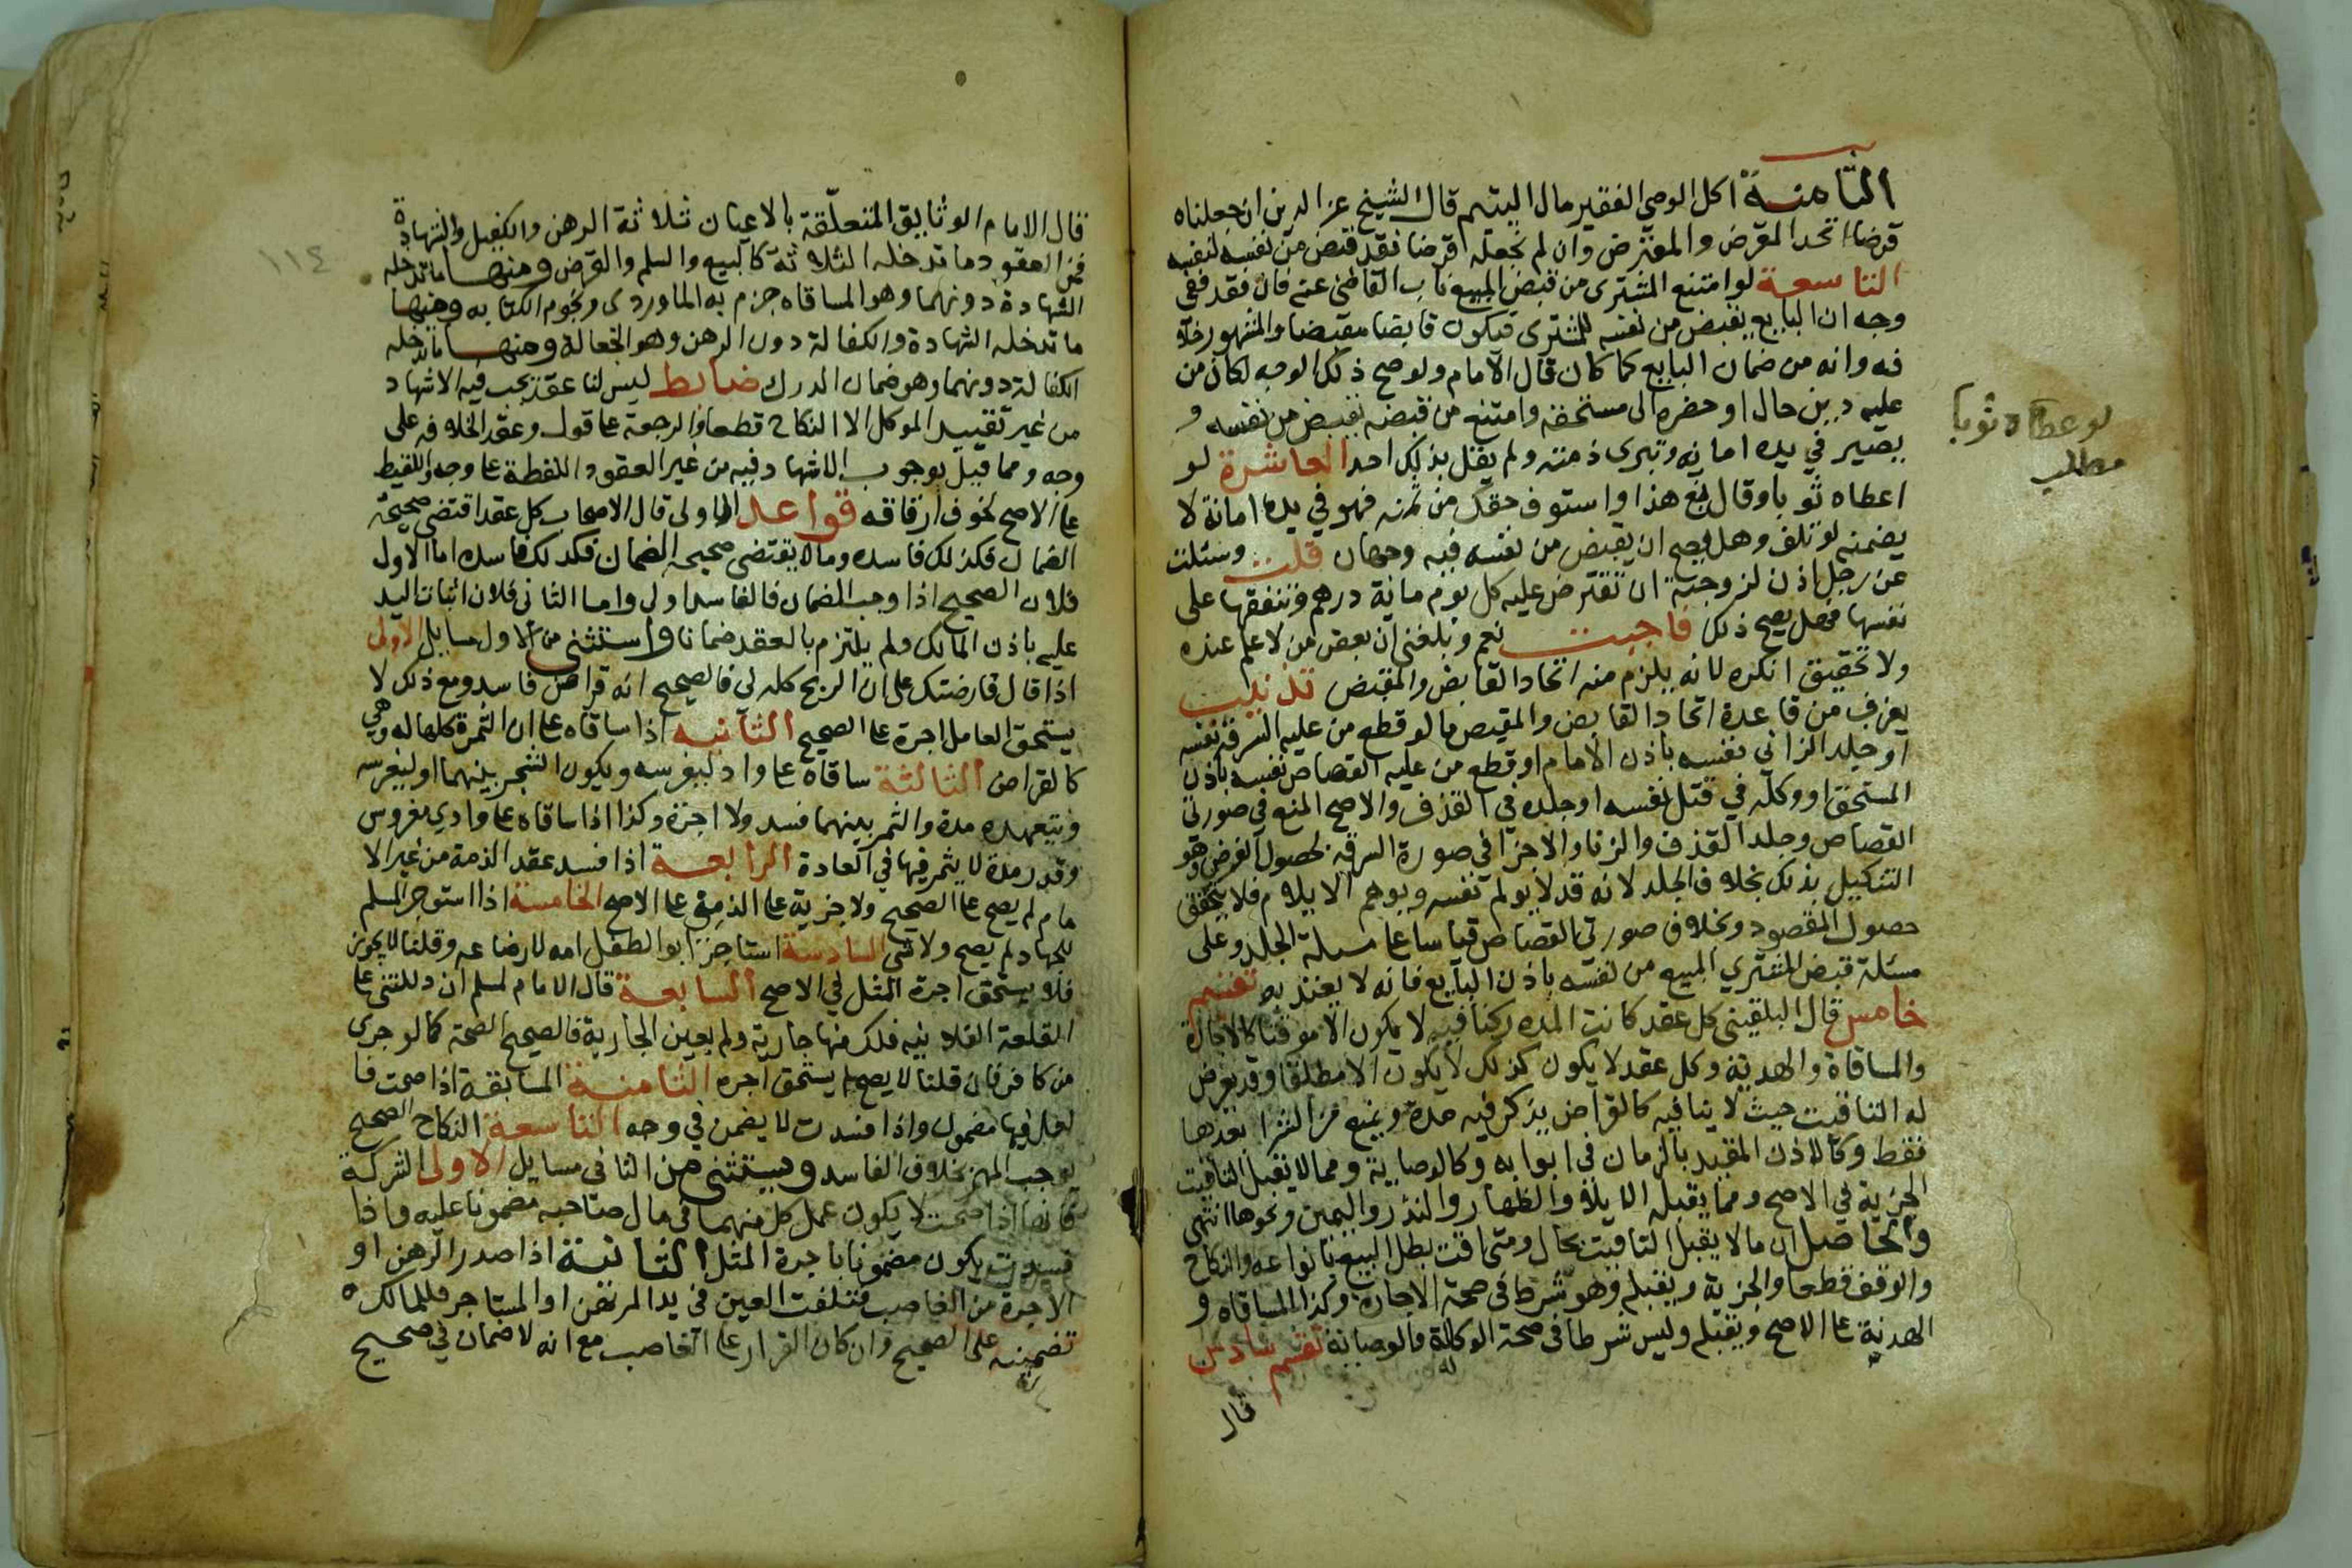 الثامنة اكل الوصي الفقير مال اليتيم قال الشيخ عز الدين ان جعلناه
قرضا اتحد المقرض والمقترض وان لم نجعله قرضا فقد قبض من نفسه لنفسه
التاسعة لو امتنع المشترى من قبض المبيع ناب القاضى عنه فان فقد ففى
وجه ان البايع يقبض من نفسه للمشترى فيكون قابضا مقبضا والمشهور خلا
فه وانه من ضمان البايع كما كان قال الامام ولو صح ذلك الوجه لكان من
عليه دين حال او حضره الى مستحقه وامتنع من قبضه يقبض من نفسه و
يصير في يده امانه وتبرى ذمته ولم يقل بذلك احد العاشرة لو
اعطاه ثوبا وقال بع هذا واستوف حقك من ثمنه فهو في يده امانة لا
يضمنه لو تلف وهل يصح ان يقبض من نفسه فيه وجهان قلت وسئلت
عن رجل اذن لزوجته ان تقترض عليه كل يوم ماية درهم وتنفقها على
نفسها فهل يصح ذلك فاجبت نعم وبلغني ان بعض من لا علم عنده
ولا تحقيق انكره لانه يلزم منه اتحاد القابض والمقبض تذنيب
يعرف من قاعدة اتحاد القابض والمقبض ما لو قطع من عليه السرقه نفسه
او جلد الزاني نفسه باذن الامام او قطع من عليه القصاص نفسه باذن
المستحق او وكله في قتل نفسه او جلده في القذف والاصح المنع في صورتي
القصاص وجلد القذف والزنا والاجزا في صورة السرقه لحصول الغرض وهو
التنكيل بذلك بخلاف الجلد لانه قد لا يولم نفسه ويوهم الايلام فلا يتحقق
حصول المقصود وبخلاف صورتي القصاص قياسا عا مسلة الجلد وعلى
مسئلة قبض المشتري المبيع من نفسه باذن البايع فانه لا يعتد به تقسيم
خامس قال البلقينى كل عقد كانت المده ركنا فيه لا يكون الا موقتا كالاجارة
والمساقاة والهدنة وكل عقد لا يكون كذلك لا يكون الا مطلقا وقد يعرض
له التاقيت حيث لا ينافيه كالقراض يذكر فيه مدة ويمنع من الشرا بعدها
فقط وكالاذن المقيد بالزمان فى ابوابه وكالوصاية ومما لا يقبل التاقيت
الجزية في الاصح ومما يقبله الايلا والظهار والنذر واليمين ونحوها انتهى
والحاصل ان ما لا يقبل التاقيت بحال ومتى اقت بطل البيع بانواعه والنكاح
والوقف قطعا والجزية ويقبله وهو شرط في صحة الاجارة وكذا المساقاه و
الهدنة عا الاصح ويقبله وليس شرطا فى صحة الوكالة والوصاية تقسيم سادس
قال
لو عطاه ثوبا
مطلب
١١٤
قال الامام الوثايق المتعلقة بالاعيان ثلاثة الرهن والكفيل والشهادة
فمن العقود ما تدخله الثلاثة كالبيع والسلم والقرض ومنها ما تدخله
الشهادة دونهما وهو المساقاه جزم به الماوردى ونجوم الكتابه ومنها
ما تدخله الشهادة والكفالة دون الرهن وهو الجعالة ومنها ما تدخله
الكفالة دونهما وهو ضمان الدرك ضابط ليس لنا عقد يجب فيه الاشهاد
من غير تقييد الموكل الا النكاح قطعا والرجعة عا قول وعقد الخلافه على
وجه ومما قيل بوجوب الاشهاد فيه من غير العقود اللقطة عا وجه واللقيط
عا الاصح لخوف ارقاقه قواعد الاولى قال الاصحاب كل عقد اقتضى صحيحه
الضمان فكذلك فاسده وما لا يقتضى صحيحه الضمان فكذلك فاسده اما الاول
فلان الصحيح اذا اوجب الضمان فالفاسد اولى واما الثانى فلان اثبات اليد
عليه باذن المالك ولم يلتزم بالعقد ضمانا واستثنى من الاول مسايل الاولى
اذا قال قارضتك على ان الربح كله لي فالصحيح انه قراض فاسد ومع ذلك لا
يستحق العامل اجرة عا الصحيح الثانيه اذا ساقاه عا ان الثمرة كلها له وهي
كالقراض الثالثة ساقاه عا واد ليغرسه ويكون الشجر بينهما او ليغرسه
ويتعهده مدة والثمر بينهما فسد ولا اجرة وكذا اذا ساقاه عا وادي مغروس
وقدر مدة لا يثمر فيها في العادة الرابعة اذا فسد عقد الذمة من غير الا
مام لم يصح عا الصحيح ولا جزية عا الذمي عا الاصح الخامسة اذا استوجر المسلم
للجهاد لم يصح ولا شى السادسة استاجر ابو الطفل امه لارضاعه وقلنا لا يجوز
فلا يستحق اجرة المثل في الاصح السابعة قال الامام لمسلم ان دللتنى عا
القلعة الفلانيه فلك منها جارية ولم يعين الجارية فالصحيح الصحة كما لو جرى
من كافر فان قلنا لا يصح لم يستحق اجره الثامنة المسابقة اذا صحت فا
لعمل فيها مضمون واذا فسدت لا يضمن في وجه التاسعة النكاح الصحيح
يوجب المهر بخلاف الفاسد ويستثنى من الثانى مسايل الاولى الشركة
فانها اذا صحت لا يكون عمل كل منهما فى مال صاحبه مضمونا عليه واذا
فسدت يكون مضمونا باجرة المثل الثانية اذا صدر الرهن او
الاجرة من الغاصب فتلفت العين في يد المرتهن او المستاجر فللمالك
تضمينه على الصحيح وان كان القرار عا الغاصب مع انه لا ضمان في صحيح